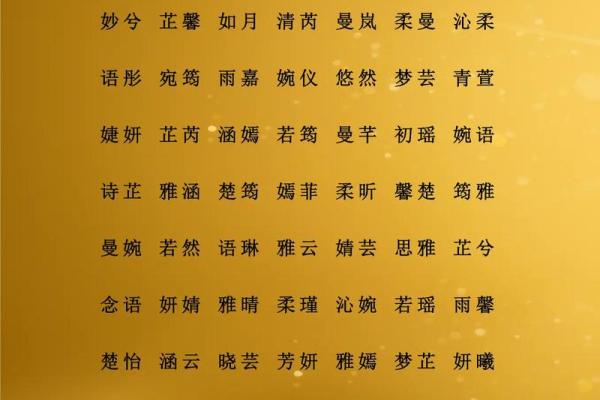 妙兮 芷馨 如月 清芮 曼岚 柔曼 沁柔
语彤 宛筠 雨嘉 婉仪 悠然 梦芸 青萱
婕妍 芷芮 涵嫣 若筠 曼芊 初瑶 婉语
诗芷 雅涵 楚筠 嫣菲 柔昕 馨楚 筠雅
曼婉 若然 语琳 雅云 婧芸 思雅 芷兮
念语 妍婧 雅晴 柔瑾 沁婉 若瑶 雨馨
楚怡 涵云 晓芸 芳妍 雅嫣 梦芷 妍曦